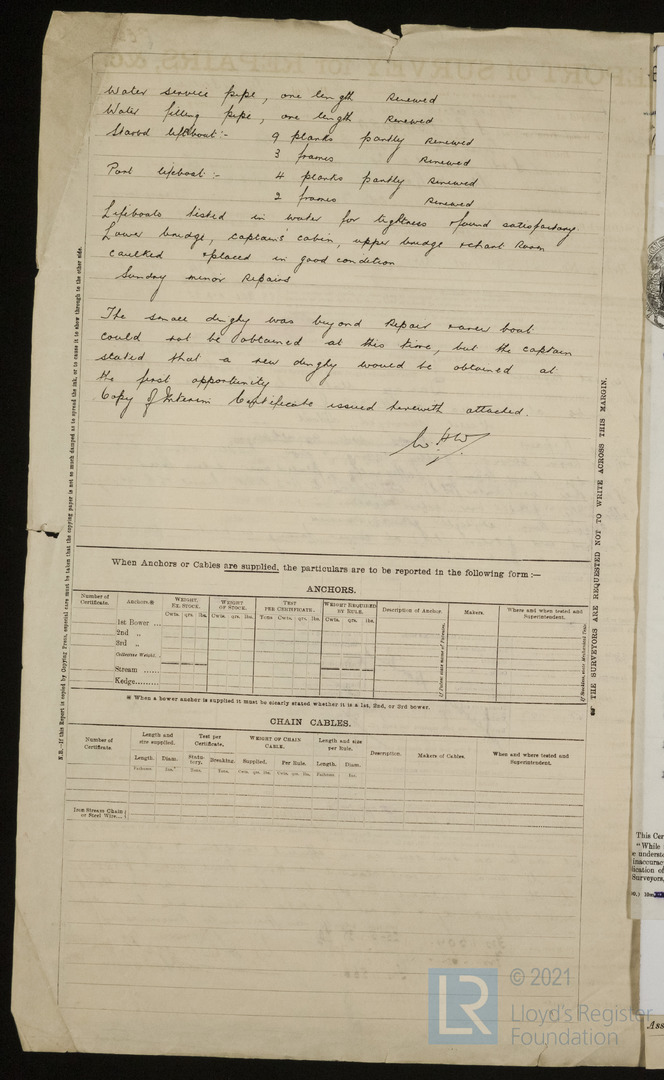 Water service pipe, one length renewed
Water filling pipe, one length renewed
Starbd lifeboat:- 9 planks partly renewed
3 frames renewed
Port lifeboat:- 4 planks partly renewed
2 frames renewed
Lifeboats tested in water for tightness & found satisfactory.
Lower bridge, captain's cabin, upper bridge & chart room
caulked & placed in good condition
Sundry minor repairs
The small dinghy was beyond repair & a new boat
could not be obtained at this time, but the captain
stated that a new dinghy would be obtained at
the first opportunity
Copy of Interim Certificate issued herewith attached.
W.H.W.
When Anchors or Cables are supplied, the particulars are to be reported in the following form :—
ANCHORS.
Number of Certificate. Anchors.※ WEIGHT, EX. STOCK. WEIGHT OF STOCK. TEST PER CERTIFICATE. WEIGHT REQUIRED BY RULE. Description of Anchor. Makers. Where and when tested and Superintendent.
Cwts. qrs. lbs. Cwts. qrs. lbs. Tons Cwts. qrs. lbs. Cwts. qrs. lbs.
1st Bower ...
2nd „
3rd „
Collective Weight.
Stream ......
Kedge.........
※ When a bower anchor is supplied it must be clearly stated whether it is a 1st, 2nd, or 3rd bower.
CHAIN CABLES.
Number of Certificate. Length and size supplied. Test per Certificate. WEIGHT OF CHAIN CABLE. Length and size per Rule. Description. Makers of Cables. When and where tested and Superintendent.
Length. Diam. Statutory. Breaking. Supplied. Per Rule. Length. Diam.
Fathoms Ins. Tons. Tons. Cwts. qrs. lbs. Cwts. qrs. lbs. Fathoms Ins.
Iron Stream Chain or Steel Wire....
N.B.—If this Report is copied by Copying Press, especial care must be taken that the copying paper is not so much damped as to spread the ink, or to cause it to show through to the other side.
THE SURVEYORS ARE REQUESTED NOT TO WRITE ACROSS THIS MARGIN.
If Patent state name of Patentee.
This Cer
"While
e underst
inaccurac
ication of
Surveyors,
Ass
LR
© 2021
Lloyd's Register
Foundation